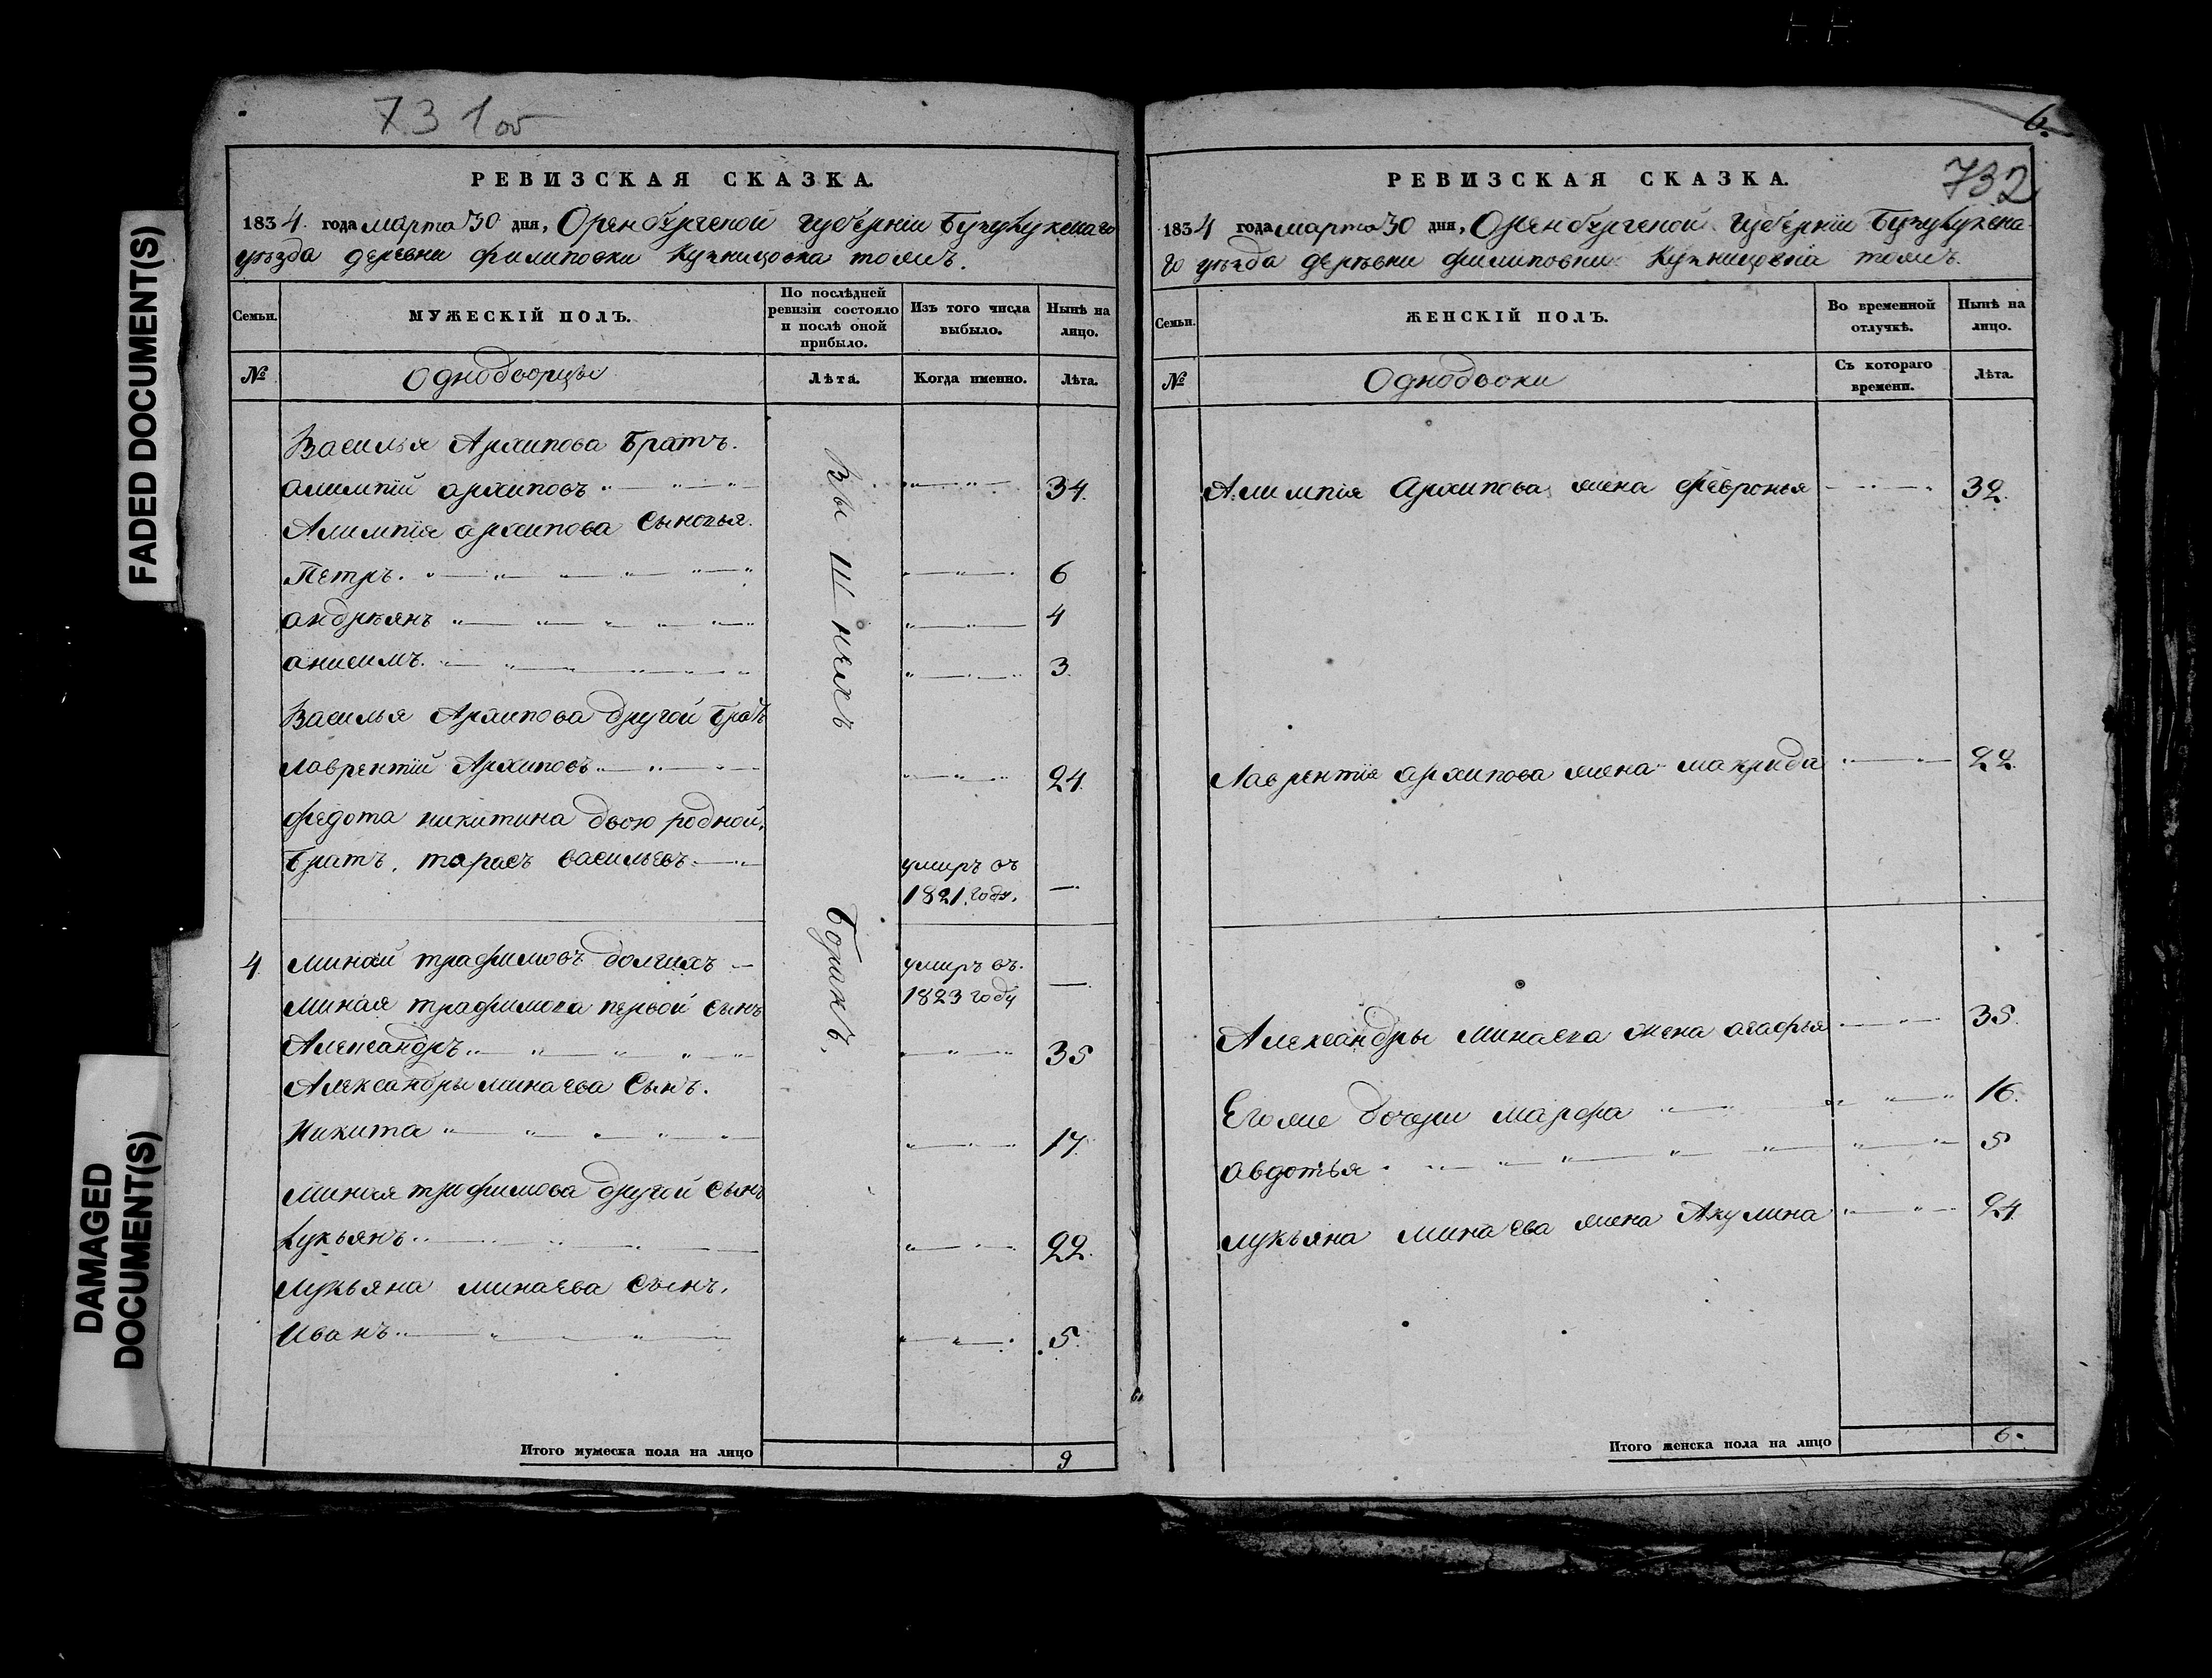 731 об
РЕВИЗСКАЯ СКАЗКА.
1834. года марта 30 дня, Оренбургской губернiи Бузулукскаго
уѣзда деревни филиповки кузницовка тожъ.
Семьи.
МУЖЕСКІЙ ПОЛЪ.
По послѣдней ревизіи состояло и послѣ оной прибыло.
Изъ того числа выбыло.
Нынѣ на лицо.
№
Однодворцы
Лѣта.
Когда именно.
Лѣта.
Василья Архипова Братъ.
алимпiй архиповъ 34.
Алимпiя архипова Сыновья.
Петръ. 6
андреянъ 4
анисимъ. 3.
Василья Архипова другой братъ
лаврентiй Архиповъ 24.
федота никитина двою родной
Братъ. тарасъ васильевъ умиръ въ
1821. году. —
4 минай трафимовъ долгихъ умиръ въ.
1823 году —
миная трафимова первой сынъ
Александръ 35
Александры минаева Сынъ.
Никита 17.
миная трофимова другой Сынъ
лукьянъ 22.
лукьяна минаева Сынъ.
Иванъ 5.
Итого мужеска пола на лицо 9
FADED DOCUMENT(S)
DAMAGED
DOCUMENT(S)
6.
732
РЕВИЗСКАЯ СКАЗКА.
1834 года марта 30 дня, Оренбургской губернiи Бузулукска
го уѣзда деревни филиповки кузницовка тожъ.
Семьи.
ЖЕНСКІЙ ПОЛЪ.
Во временной отлучкѣ.
Нынѣ на лицо.
№
Однодворки
Съ котораго времени.
Лѣта.
Алимпiя Архипова жена февронья 32.
Лаврентiя архипова жена макрида 22.
Александры Минаева жена агафья 35.
Егоже дочери марфа 16.
авдотья 5
лукьяна минаева жена Акулина 24.
Итого женска пола на лицо 6.